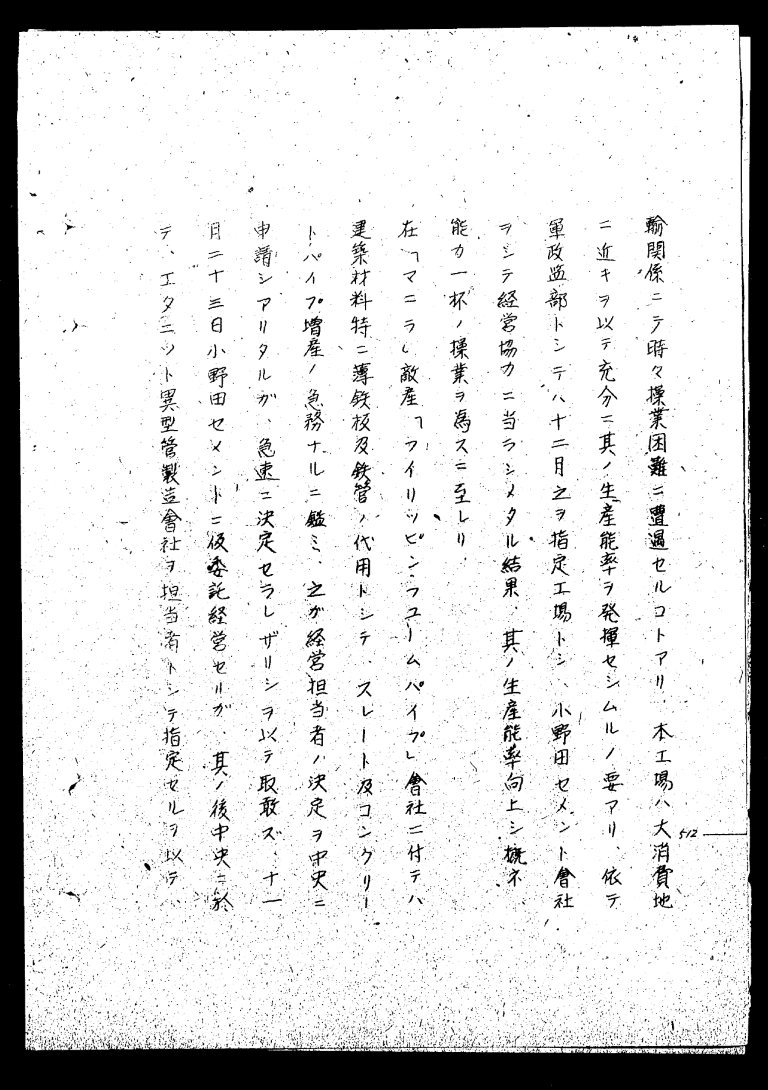 輸関係ニテ時々操業困難ニ遭遇セルコトアリ、本工場ハ大消費地
ニ近キヲ以テ充分ニ其ノ生産能率ヲ発揮セシムルノ要アリ、依テ
軍政監部トシテハ十二月之ヲ指定工場トシ、小野田セメント會社
ヲシテ経営協力ニ当ラシメタル結果、其ノ生産能率向上シ概ネ
能力一杯ノ操業ヲ為スニ至レリ、
在「マニラ」敵産「フイリツピン・フユームパイプ」會社ニ付テハ
建築材料特ニ薄鉄板及鉄管ノ代用トシテ、スレート及コンクリー
ト・パイプ増産ノ急務ナルニ鑑ミ、之ガ経営担当者ノ決定ヲ中央ニ
申請シアリタルガ、急速ニ決定セラレザリシヲ以テ取敢ズ、十一
月二十三日小野田セメントニ仮委託経営セルガ、其ノ後中央ニ於
テ、エタニツト異型管製造會社ヲ担当者トシテ指定セルヲ以テ、
512